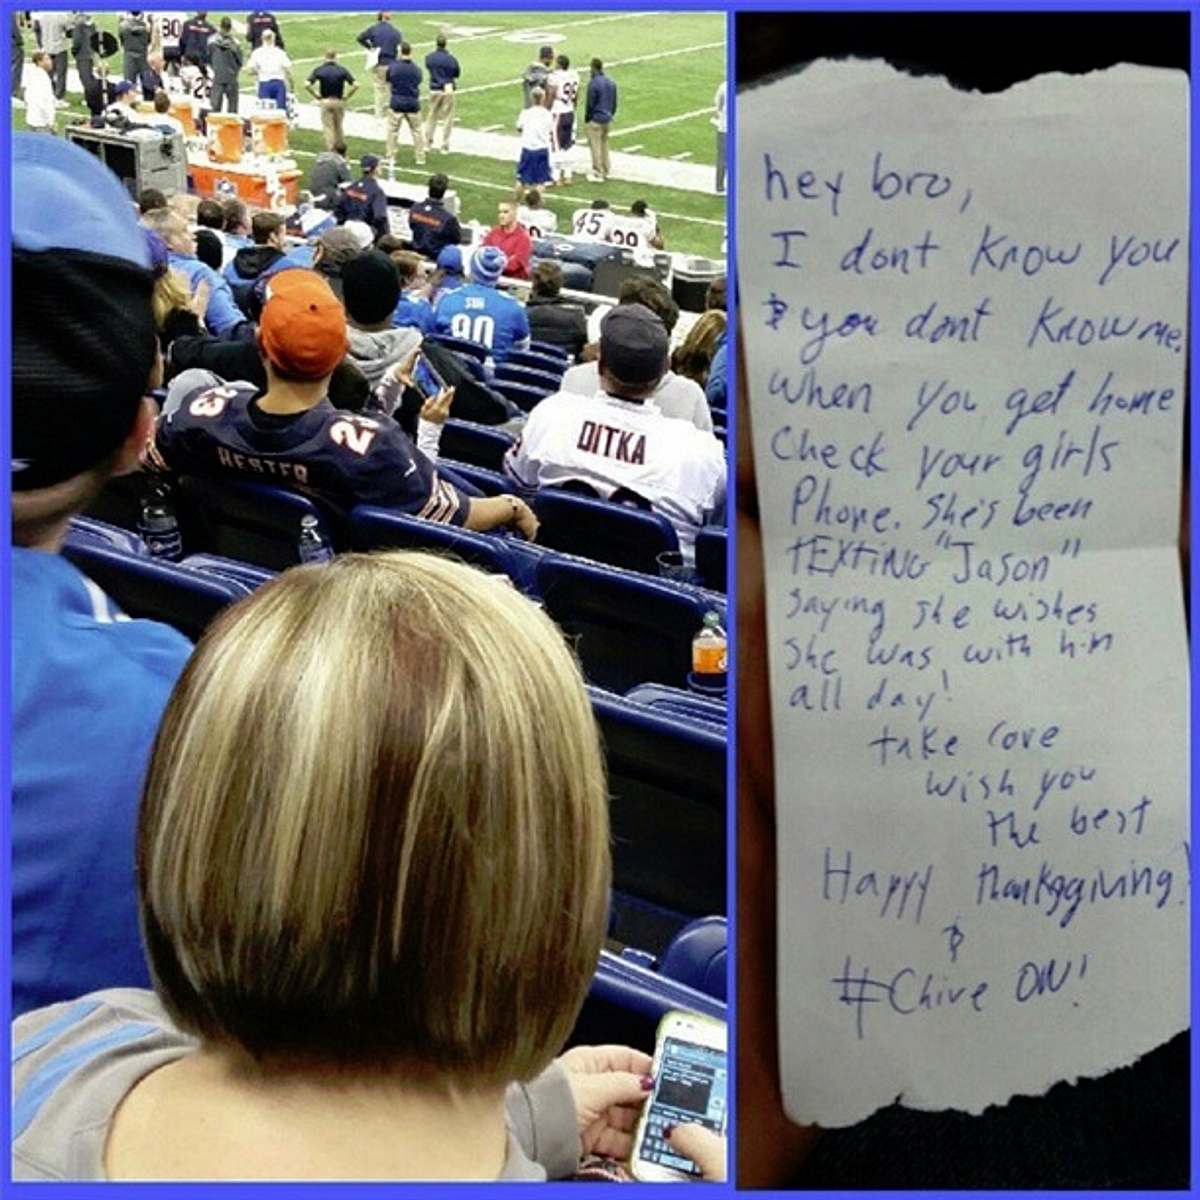 80
26
98
45
29
SUH
90
23
23
HESTER
DITKA
hey bro,
I dont know you
& you dont know me.
when you get home
Check your girls
Phone. She's been
TEXTING "Jason"
saying she wishes
she was with him
all day!
take care
wish you
the best
Happy Thanksggiving!
&
#Chive ON!